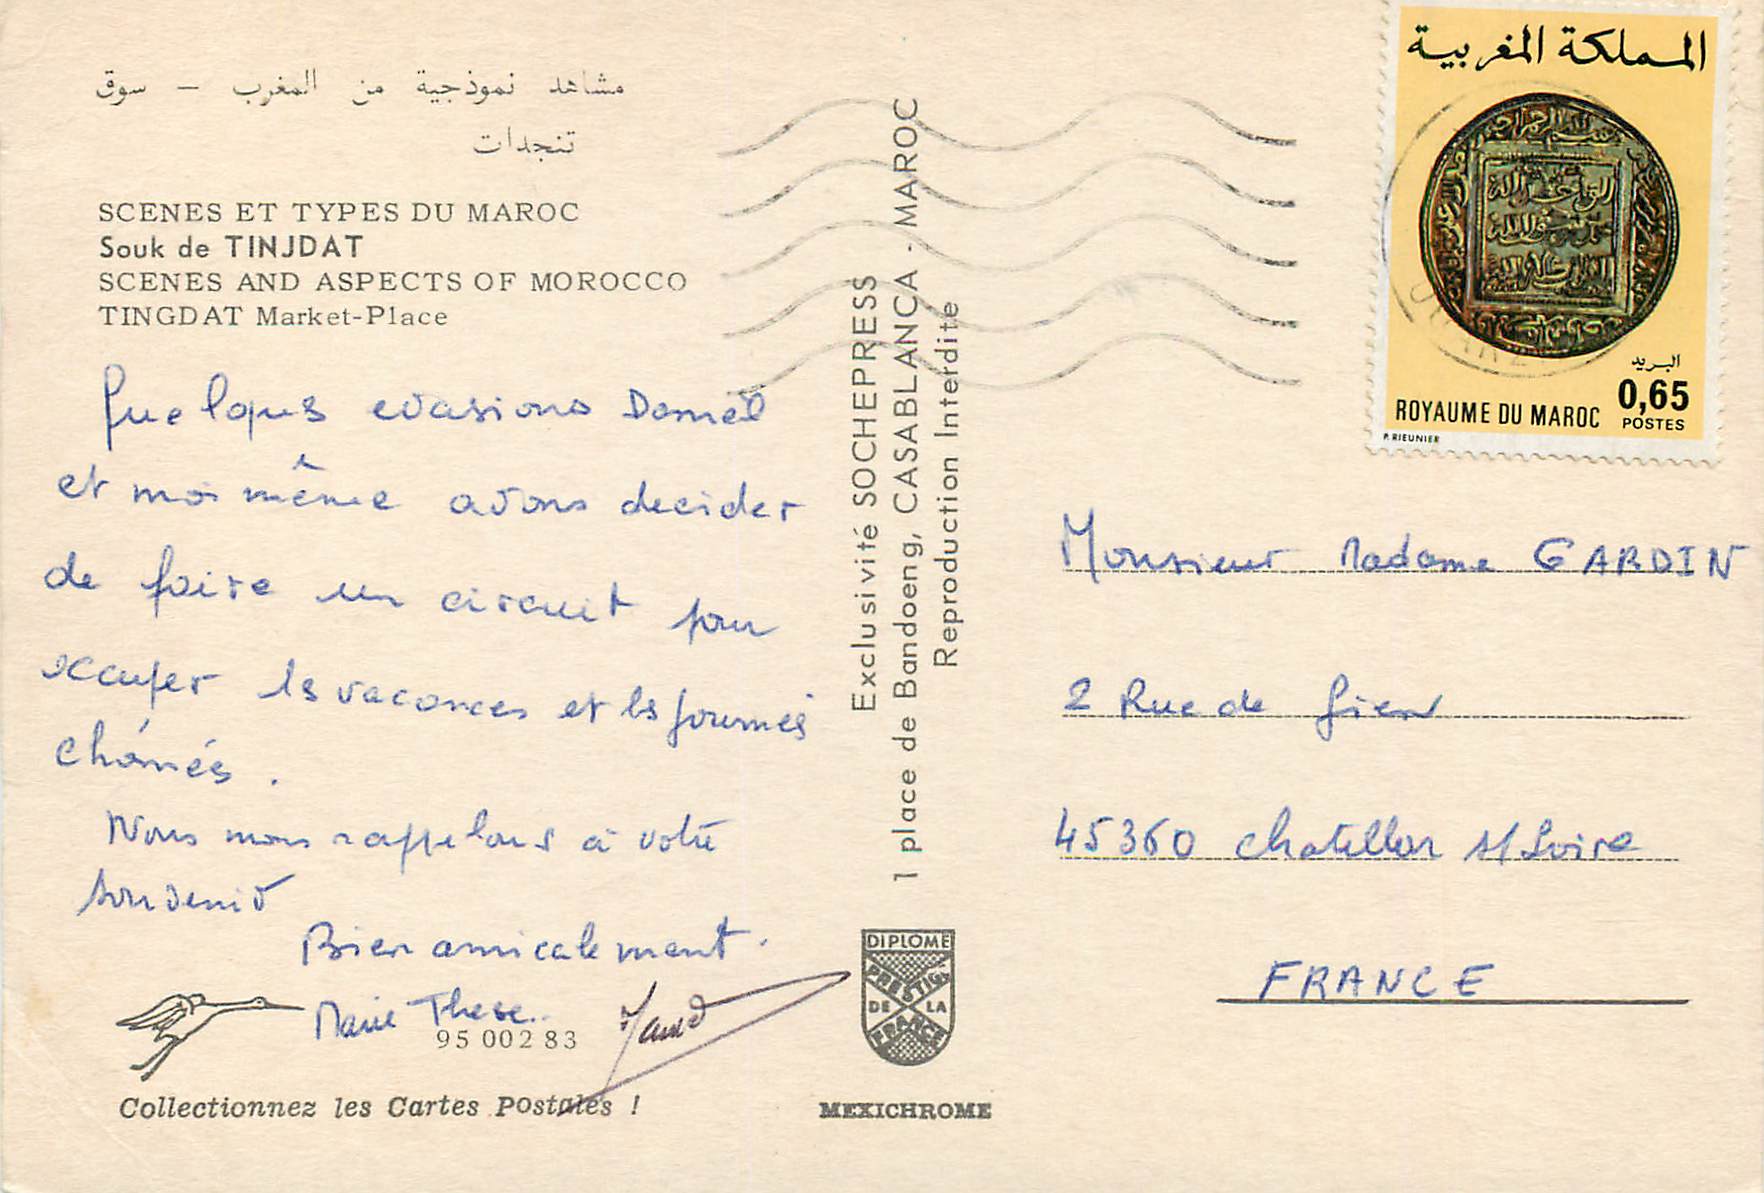 مشاهد نموذجية من المغرب – سوق
تنجدات
SCENES ET TYPES DU MAROC
Souk de TINJDAT
SCENES AND ASPECTS OF MOROCCO
TINGDAT Market-Place
Quelques evasions Daniel
et moi même avons decider
de faire un circuit pour
occuper les vacances et les journées
chômés.
Nous nous rappelons à votre
souvenir
Bien amicalement.
Marie These..
95 002 83
Collectionnez les Cartes Postales !
Exclusivité SOCHEPRESS
1 place de Bandoeng, CASABLANCA - MAROC
Reproduction Interdite
DIPLOME
PRESTIGE
DE LA
FRANCE
MEXICHROME
المملكة المغربية
البريد
0,65
ROYAUME DU MAROC
POSTES
P. RIEUNIER
Monsieur Madame GARDIN
2 Rue de Gien
45360 Chatillon s/ Loire
FRANCE